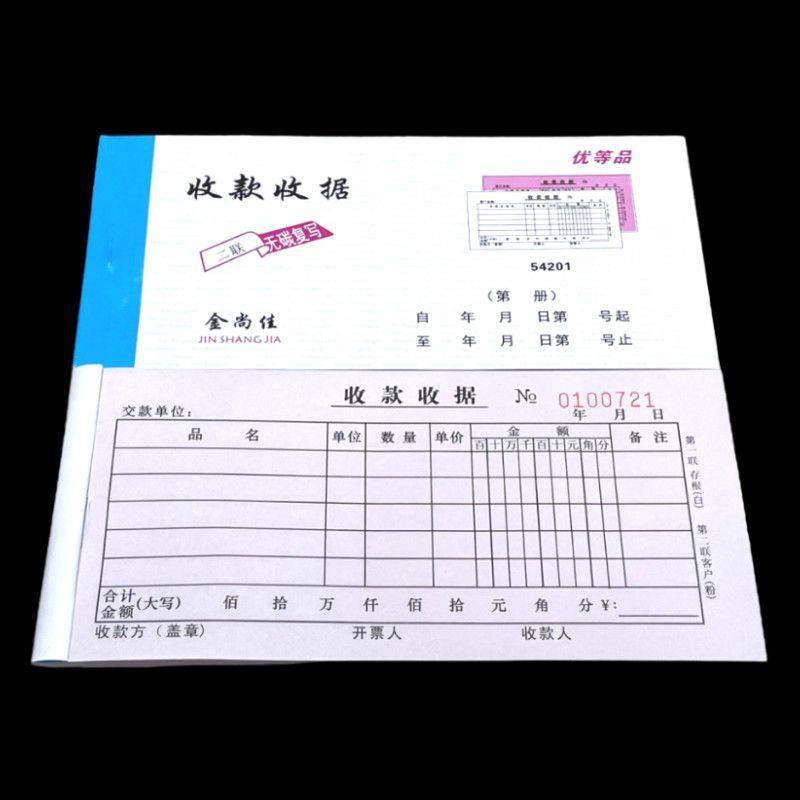 优等品
收款收据
二联 无碳复写
54201
(第 册)
金尚佳
自 年 月 日第 号起
JIN SHANG JIA
至 年 月 日第 号止
收款收据 № 0100721
交款单位: 年 月 日
品 名 单位 数量 单价 金 额 备注
百 十 万 千 百 十 元 角 分
第一联 存根(白)
第二联 客户(粉)
合计
金额 (大写) 佰 拾 万 仟 佰 拾 元 角 分 ¥:
收款方(盖章) 开票人 收款人